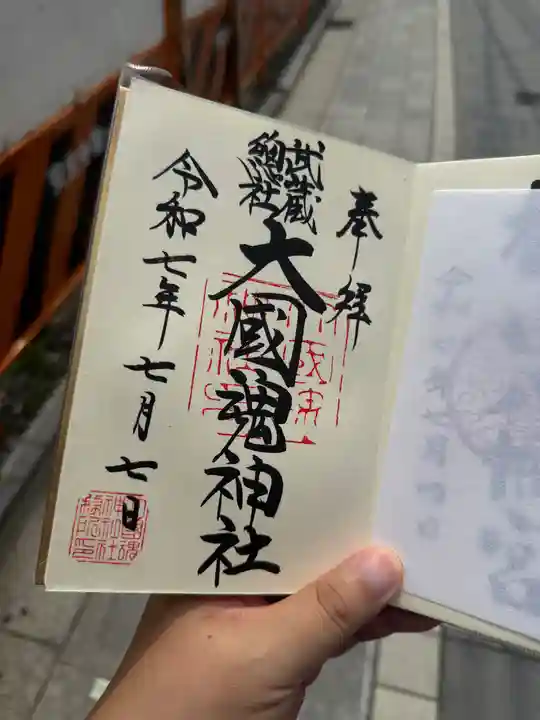 奉拝
武蔵
總社
大國魂神社
令和七年七月七日